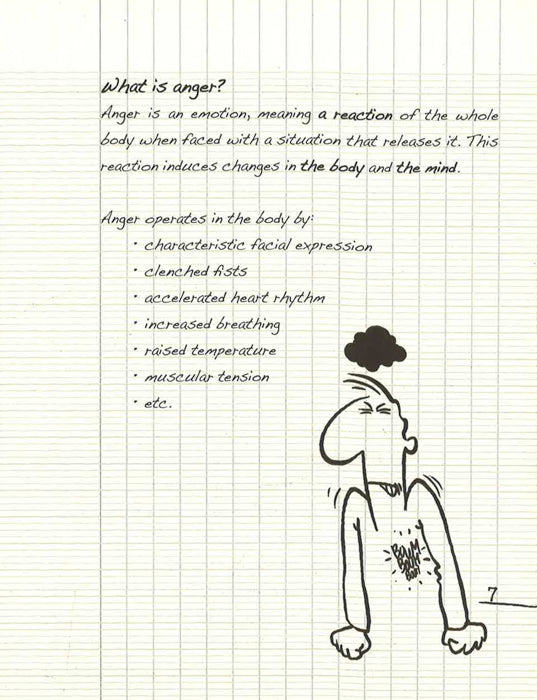 What is anger?
Anger is an emotion, meaning a reaction of the whole
body when faced with a situation that releases it. This
reaction induces changes in the body and the mind.
Anger operates in the body by:
• characteristic facial expression
• clenched fists
• accelerated heart rhythm
• increased breathing
• raised temperature
• muscular tension
• etc.
BOUM
BOUM
BOUM
7